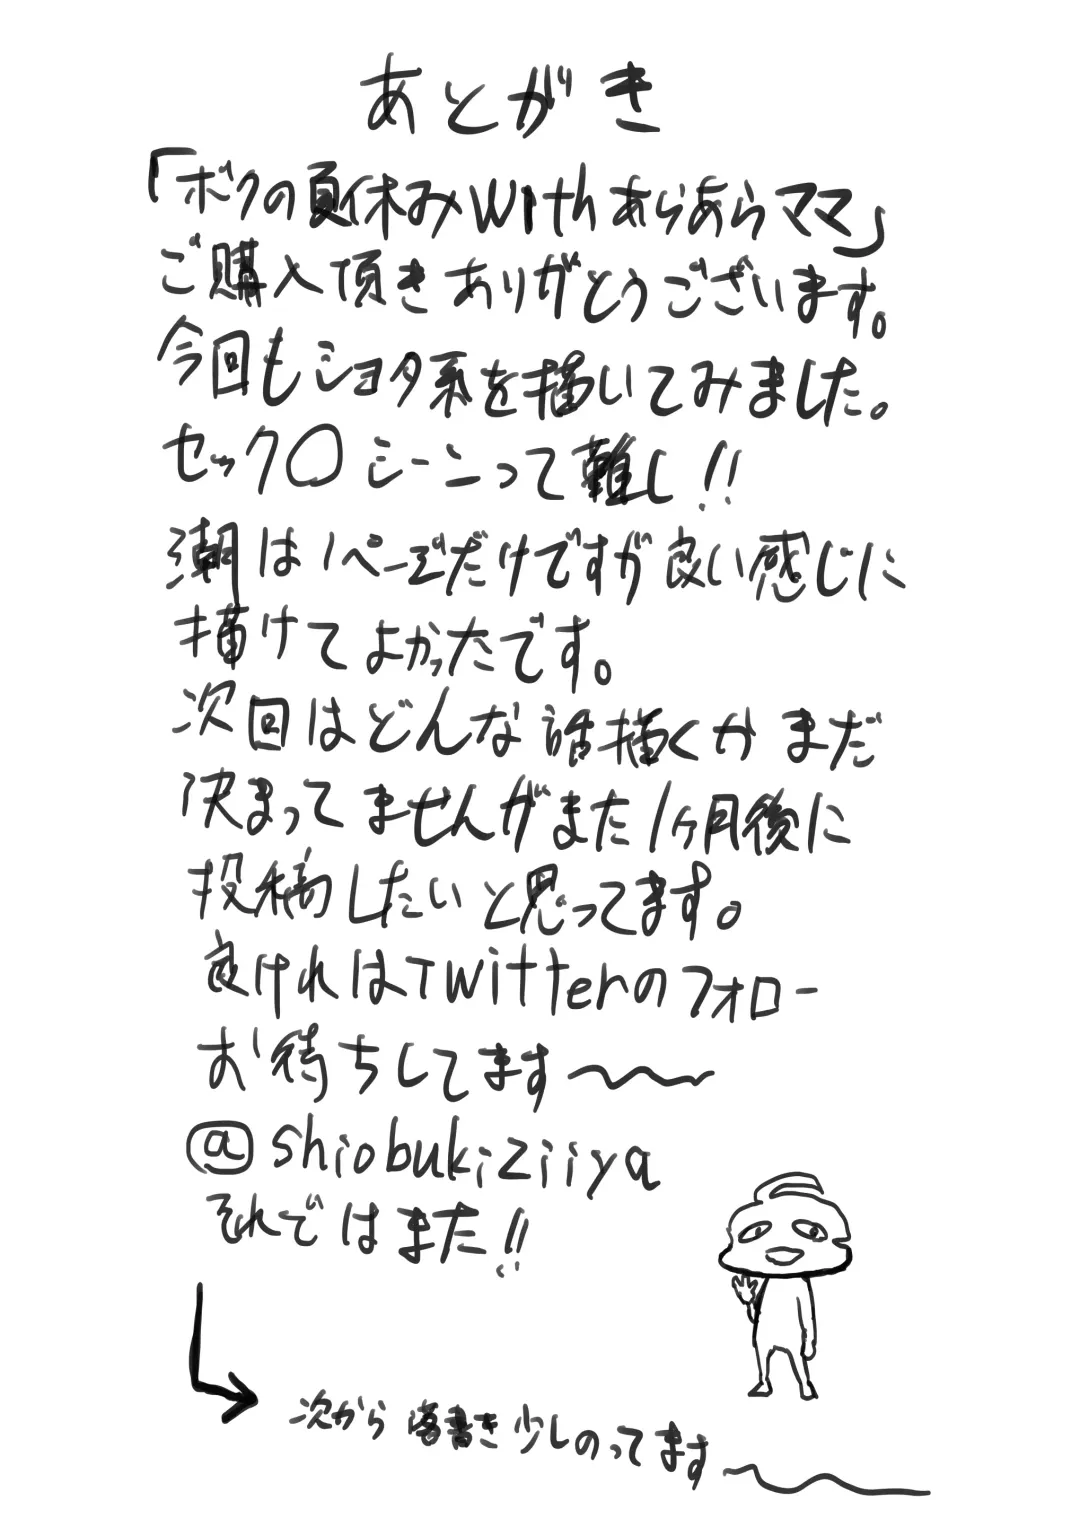 あとがき
「ボクの夏休みwithあらあらママ」
ご購入頂きありがとうございます。
今回もショタ系を描いてみました。
セック〇シーンって難し!!
潮は1ページだけですが良い感じに
描けてよかったです。
次回はどんな話描くかまだ
決まってませんがまた1ヶ月後に
投稿したいと思ってます。
良ければTwitterのフォロー
お待ちしてます〜
@shiobukiziiya
それではまた!!
次から落書き少しのってます〜